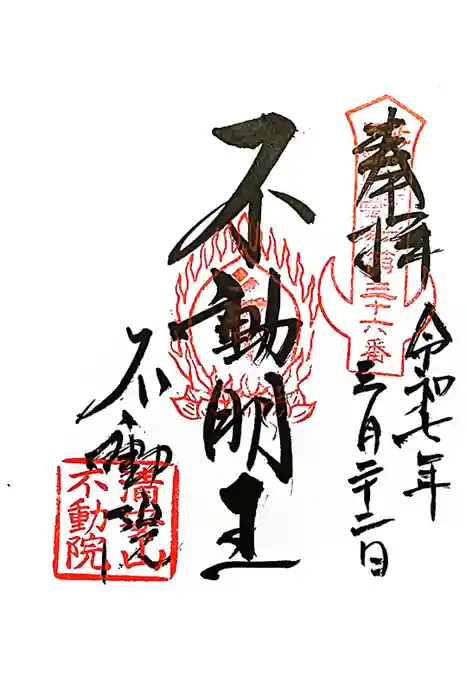 奉拝
令和七年
三月二十二日
三十六番
不動明王
不動院
不動院